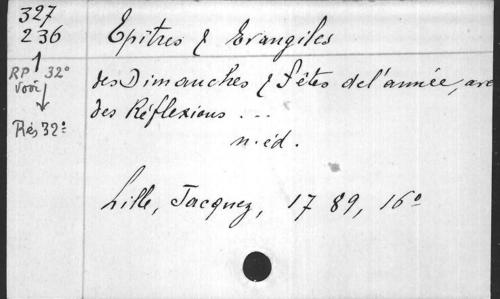 327
236
RP 32°
voir
Rés 32°
Epîtres & Evangiles
des Dimanches & Fêtes de l'année, avec
des Réflexions ...
n. éd.
Lille, Jacquez, 1789, 16°